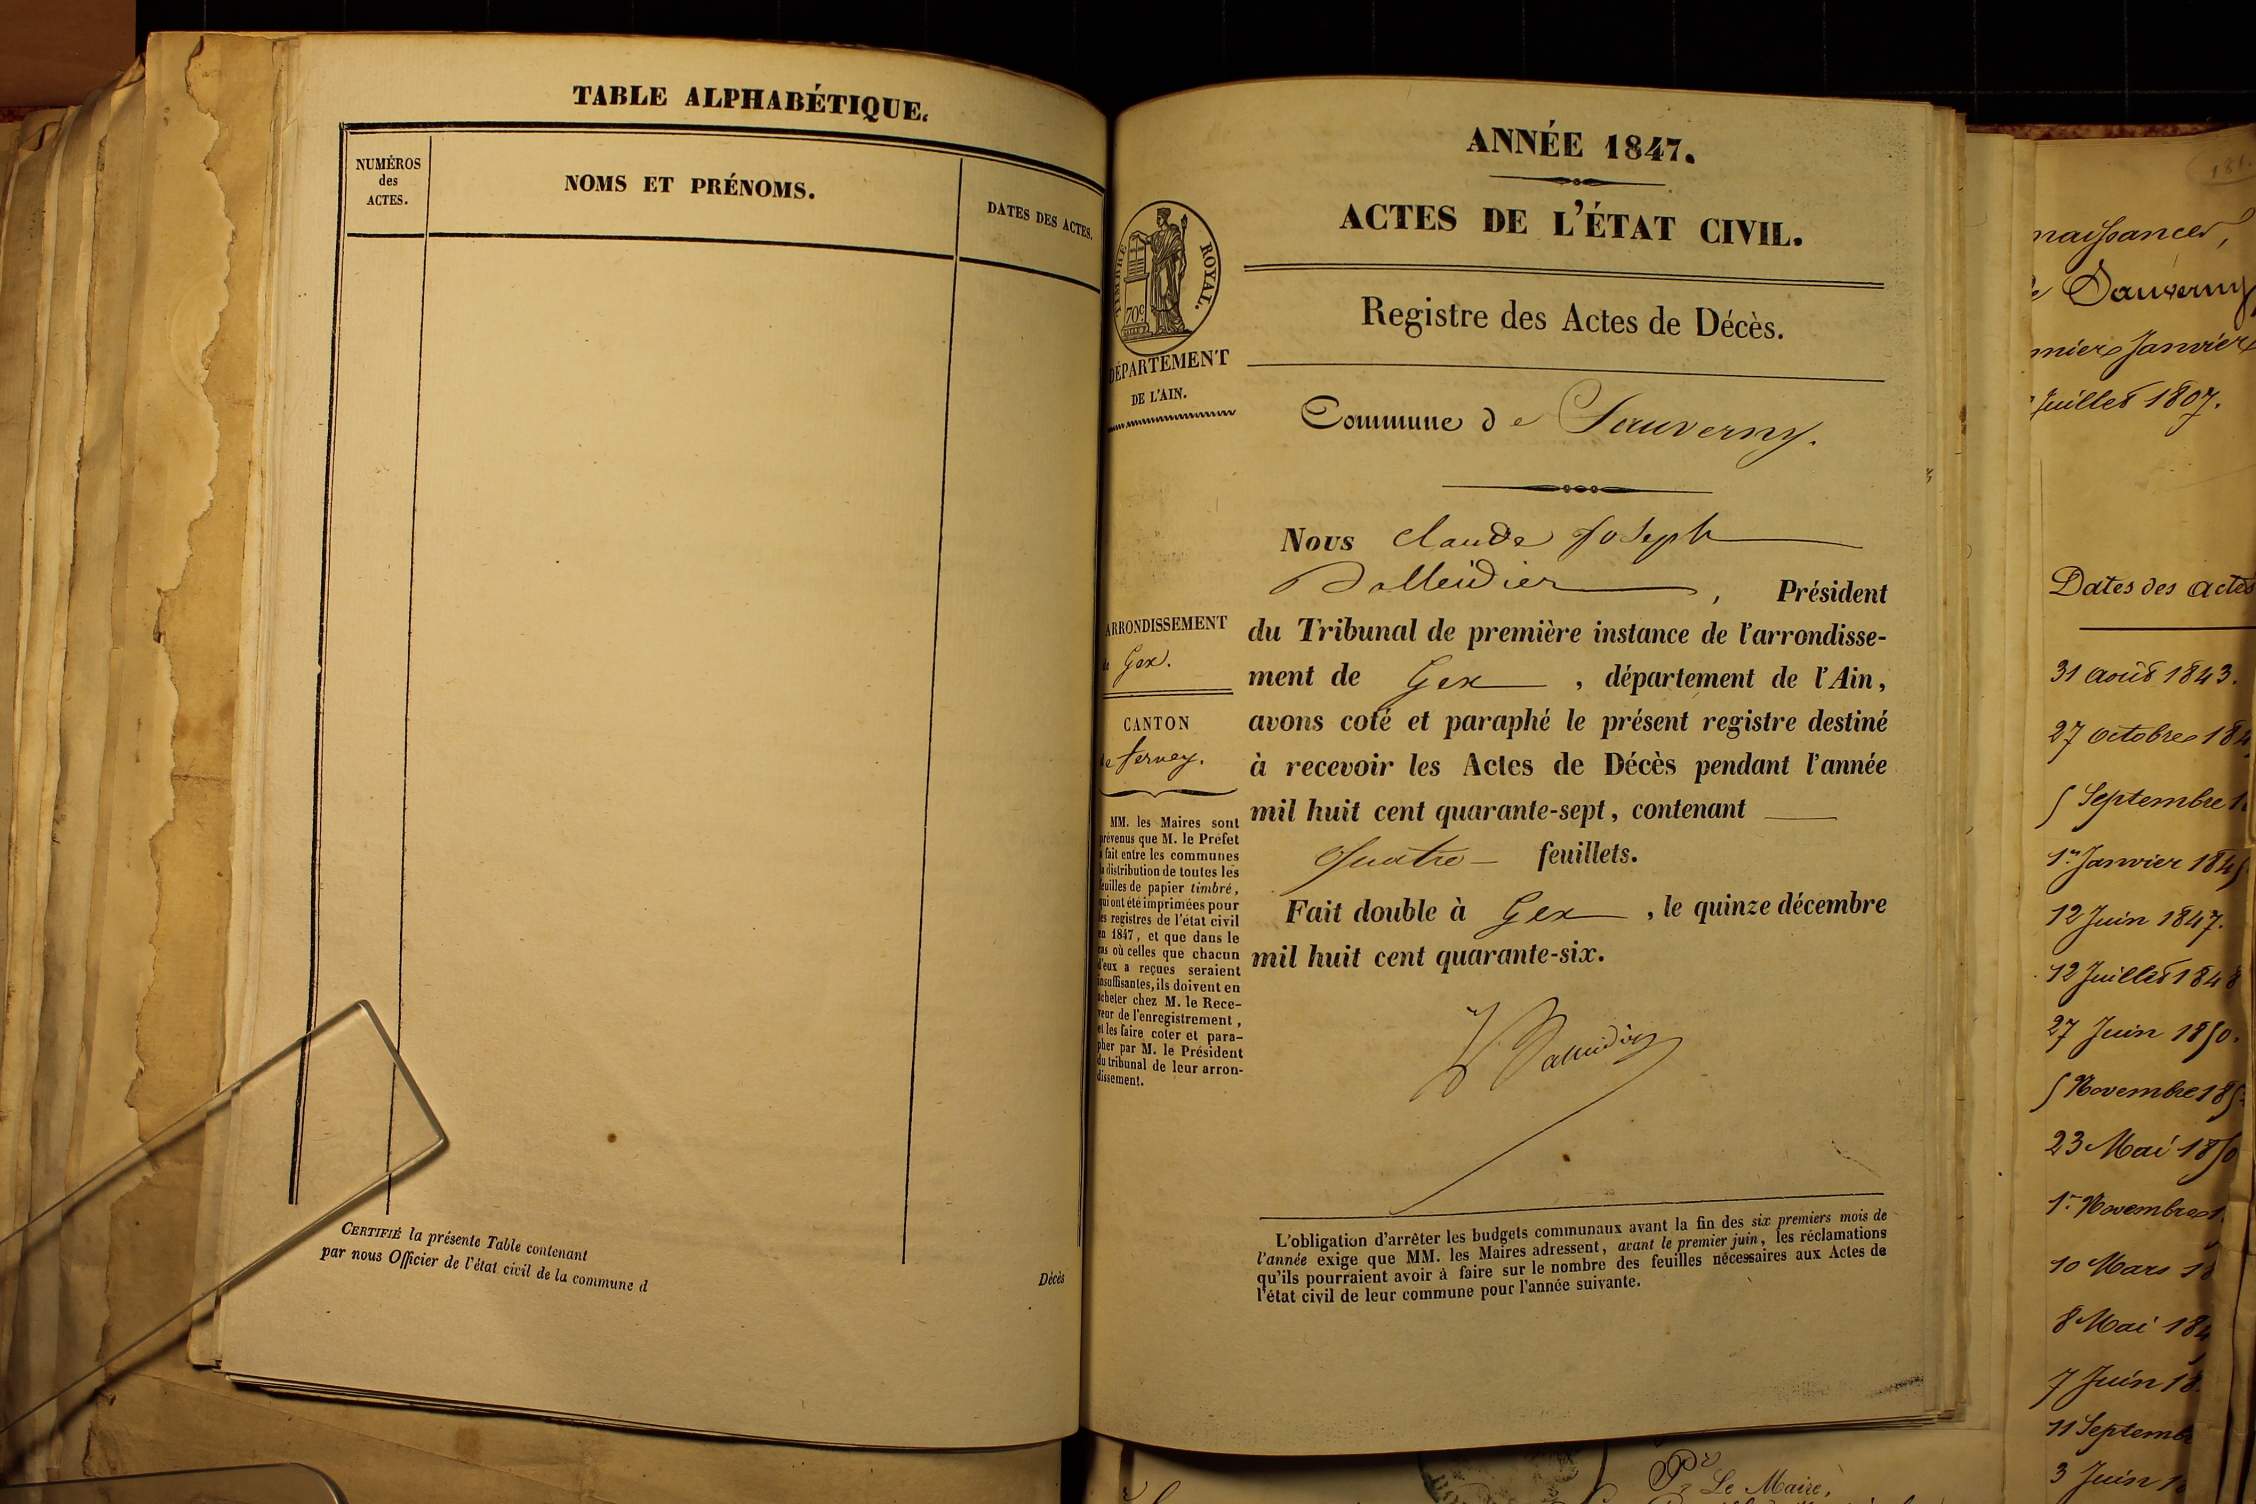 TABLE ALPHABÉTIQUE.
NUMÉROS
des
ACTES.
NOMS ET PRÉNOMS.
DATES DES ACTES.
CERTIFIÉ la présente Table contenant
par nous Officier de l'état civil de la commune d
Décès
ANNÉE 1847.
ACTES DE L'ÉTAT CIVIL.
TIMBRE ROYAL.
70c
Registre des Actes de Décès.
DÉPARTEMENT
DE L'AIN.
Commune de Sauverny.
Nous Claude Joseph
Balleidier, Président
du Tribunal de première instance de l'arrondisse-
ment de Gex, département de l'Ain,
avons coté et paraphé le présent registre destiné
à recevoir les Actes de Décès pendant l'année
mil huit cent quarante-sept, contenant
quatre feuillets.
Fait double à Gex, le quinze décembre
mil huit cent quarante-six.
Balleidier
ARRONDISSEMENT
de Gex.
CANTON
de Ferney.
MM. les Maires sont
prévenus que M. le Préfet
a fait entre les communes
la distribution de toutes les
feuilles de papier timbré,
qui ont été imprimées pour
les registres de l'état civil
en 1847, et que dans le
cas où celles que chacun
d'eux a reçues seraient
insuffisantes, ils doivent en
acheter chez M. le Rece-
veur de l'enregistrement,
et les faire coter et para-
pher par M. le Président
du tribunal de leur arron-
dissement.
L'obligation d'arrêter les budgets communaux avant la fin des six premiers mois de
l'année exige que MM. les Maires adressent, avant le premier juin, les réclamations
qu'ils pourraient avoir à faire sur le nombre des feuilles nécessaires aux Actes de
l'état civil de leur commune pour l'année suivante.
181.
naissances,
Sauverny
Janvier
Juillet 1807.
Dates des actes
31 août 1843.
27 octobre 184
5 Septembre 1
1er Janvier 184
12 Juin 1847.
12 Juillet 1848
27 Juin 1850.
5 Novembre 185
23 Mai 1850
1er Novembre 1
10 Mars 18
8 Mai 184
7 Juin 18
11 Septemb
3 Juin 1
Le Maire,